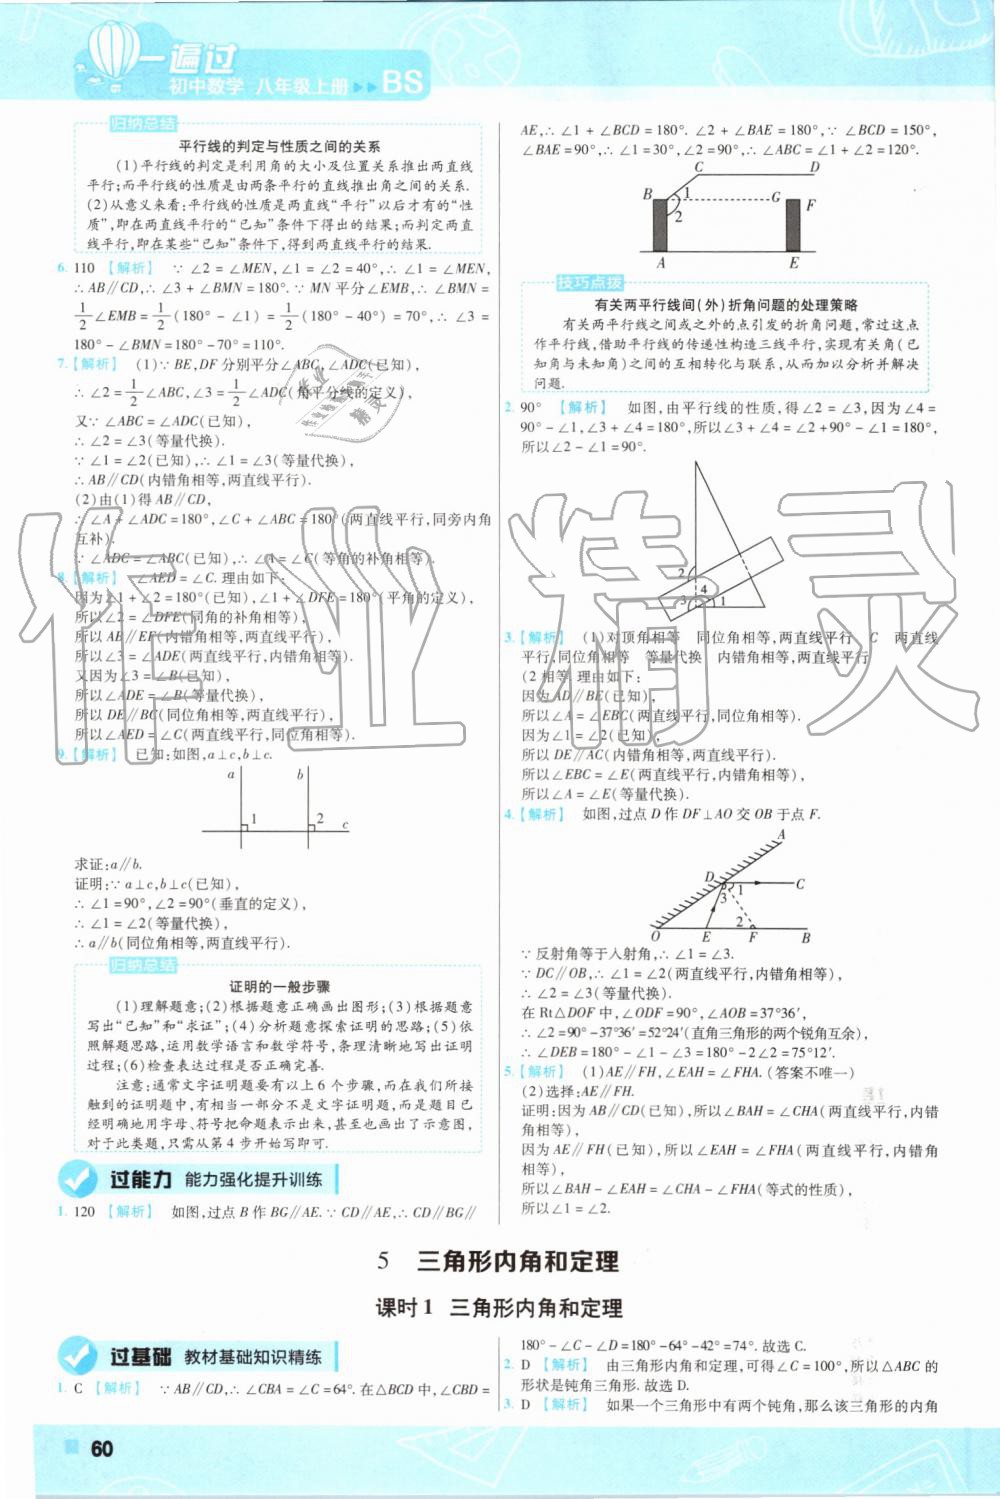 一遍过
初中数学 八年级上册 ▸▸ BS
归纳总结
平行线的判定与性质之间的关系
(1)平行线的判定是利用角的大小及位置关系推出两直线
平行;而平行线的性质是由两条平行的直线推出角之间的关系.
(2)从意义来看:平行线的性质是两直线“平行”以后才有的“性
质”,即在两直线平行的“已知”条件下得出的结果;而判定两直
线平行,即在某些“已知”条件下,得到两直线平行的结果.
6. 110 【解析】 ∵∠2=∠MEN,∠1=∠2=40°,∴∠1=∠MEN,
∴AB∥CD,∴∠3+∠BMN=180°.∵MN平分∠EMB,∴∠BMN=
1/2∠EMB=1/2(180°-∠1)=1/2(180°-40°)=70°,∴∠3=
180°-∠BMN=180°-70°=110°.
7.【解析】 (1)∵BE,DF分别平分∠ABC,∠ADC(已知),
∴∠2=1/2∠ABC,∠3=1/2∠ADC(角平分线的定义),
又∵∠ABC=∠ADC(已知),
∴∠2=∠3(等量代换).
∵∠1=∠2(已知),∴∠1=∠3(等量代换),
∴AB∥CD(内错角相等,两直线平行).
(2)由(1)得AB∥CD,
∴∠A+∠ADC=180°,∠C+∠ABC=180°(两直线平行,同旁内角
互补).
∵∠ADC=∠ABC(已知),∴∠A=∠C(等角的补角相等).
8.【解析】 ∠AED=∠C.理由如下:
因为∠1+∠2=180°(已知),∠1+∠DFE=180°(平角的定义),
所以∠2=∠DFE(同角的补角相等),
所以AB∥EF(内错角相等,两直线平行),
所以∠3=∠ADE(两直线平行,内错角相等).
又因为∠3=∠B(已知),
所以∠ADE=∠B(等量代换),
所以DE∥BC(同位角相等,两直线平行),
所以∠AED=∠C(两直线平行,同位角相等).
9.【解析】 已知:如图,a⊥c,b⊥c.
a b
1 2 c
求证:a∥b.
证明:∵a⊥c,b⊥c(已知),
∴∠1=90°,∠2=90°(垂直的定义),
∴∠1=∠2(等量代换),
∴a∥b(同位角相等,两直线平行).
归纳总结
证明的一般步骤
(1)理解题意;(2)根据题意正确画出图形;(3)根据题意
写出“已知”和“求证”;(4)分析题意探索证明的思路;(5)依
照解题思路,运用数学语言和数学符号,条理清晰地写出证明
过程;(6)检查表达过程是否正确完善.
注意:通常文字证明题要有以上6个步骤,而在我们所接
触到的证明题中,有相当一部分不是文字证明题,而是题目已
经明确地用字母、符号把命题表示出来,甚至也画出了示意图,
对于此类题,只需从第4步开始写即可.
过能力 能力强化提升训练
1. 120 【解析】 如图,过点B作BG∥AE.∵CD∥AE,∴CD∥BG∥
AE,∴∠1+∠BCD=180°.∠2+∠BAE=180°,∵∠BCD=150°,
∠BAE=90°,∴∠1=30°,∠2=90°,∴∠ABC=∠1+∠2=120°.
C D
B 1 G F
2
A E
技巧点拨
有关两平行线间(外)折角问题的处理策略
有关两平行线之间或之外的点引发的折角问题,常过这点
作平行线,借助平行线的传递性构造三线平行,实现有关角(已
知角与未知角)之间的互相转化与联系,从而加以分析并解决
问题.
2. 90° 【解析】 如图,由平行线的性质,得∠2=∠3,因为∠4=
90°-∠1,∠3+∠4=180°,所以∠3+∠4=∠2+90°-∠1=180°,
所以∠2-∠1=90°.
2
4
3 1
3.【解析】 (1)对顶角相等 同位角相等,两直线平行 C 两直线
平行,同位角相等 等量代换 内错角相等,两直线平行
(2)相等.理由如下:
因为AD∥BE(已知),
所以∠A=∠EBC(两直线平行,同位角相等).
因为∠1=∠2(已知),
所以DE∥AC(内错角相等,两直线平行).
所以∠EBC=∠E(两直线平行,内错角相等),
所以∠A=∠E(等量代换).
4.【解析】 如图,过点D作DF⊥AO交OB于点F.
A
D 1 C
3
2
O E F B
∵反射角等于入射角,∴∠1=∠3.
∵DC∥OB,∴∠1=∠2(两直线平行,内错角相等),
∴∠2=∠3(等量代换).
在Rt△DOF中,∠ODF=90°,∠AOB=37°36′,
∴∠2=90°-37°36′=52°24′(直角三角形的两个锐角互余),
∴∠DEB=180°-∠1-∠3=180°-2∠2=75°12′.
5.【解析】 (1)AE∥FH,∠EAH=∠FHA.(答案不唯一)
(2)选择:AE∥FH.
证明:因为AB∥CD(已知),所以∠BAH=∠CHA(两直线平行,内错
角相等),
因为AE∥FH(已知),所以∠EAH=∠FHA(两直线平行,内错角
相等),
所以∠BAH-∠EAH=∠CHA-∠FHA(等式的性质),
所以∠1=∠2.
5 三角形内角和定理
课时1 三角形内角和定理
过基础 教材基础知识精练
1. C 【解析】 ∵AB∥CD,∴∠CBA=∠C=64°.在△BCD中,∠CBD=
180°-∠C-∠D=180°-64°-42°=74°.故选C.
2. D 【解析】 由三角形内角和定理,可得∠C=100°,所以△ABC的
形状是钝角三角形.故选D.
3. D 【解析】 如果一个三角形中有两个钝角,那么该三角形的内角
60
作业精灵